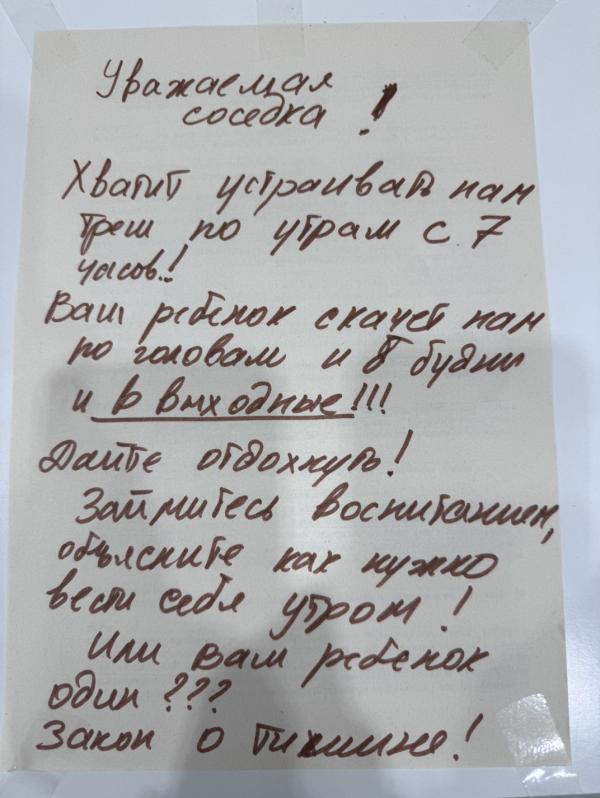 Уважаемая
соседка !
Хватит устраивать нам
треш по утрам с 7
часов.!
Ваш ребенок скачет нам
по головам и в будни
и в выходные!!!
Дайте отдохнуть!
Займитесь воспитанием,
объясните как нужно
вести себя утром!
Или вам ребенок
один???
Закон о тишине!